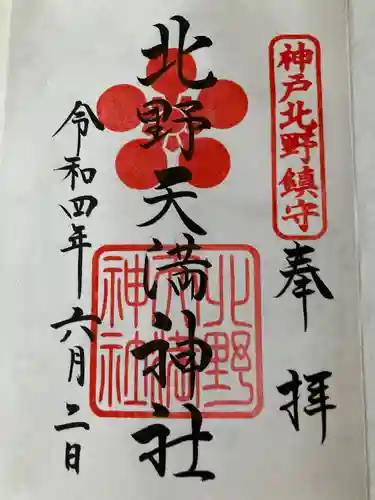 神戸北野鎮守
奉拝
北野天満神社
北野天満神社
令和四年六月二日